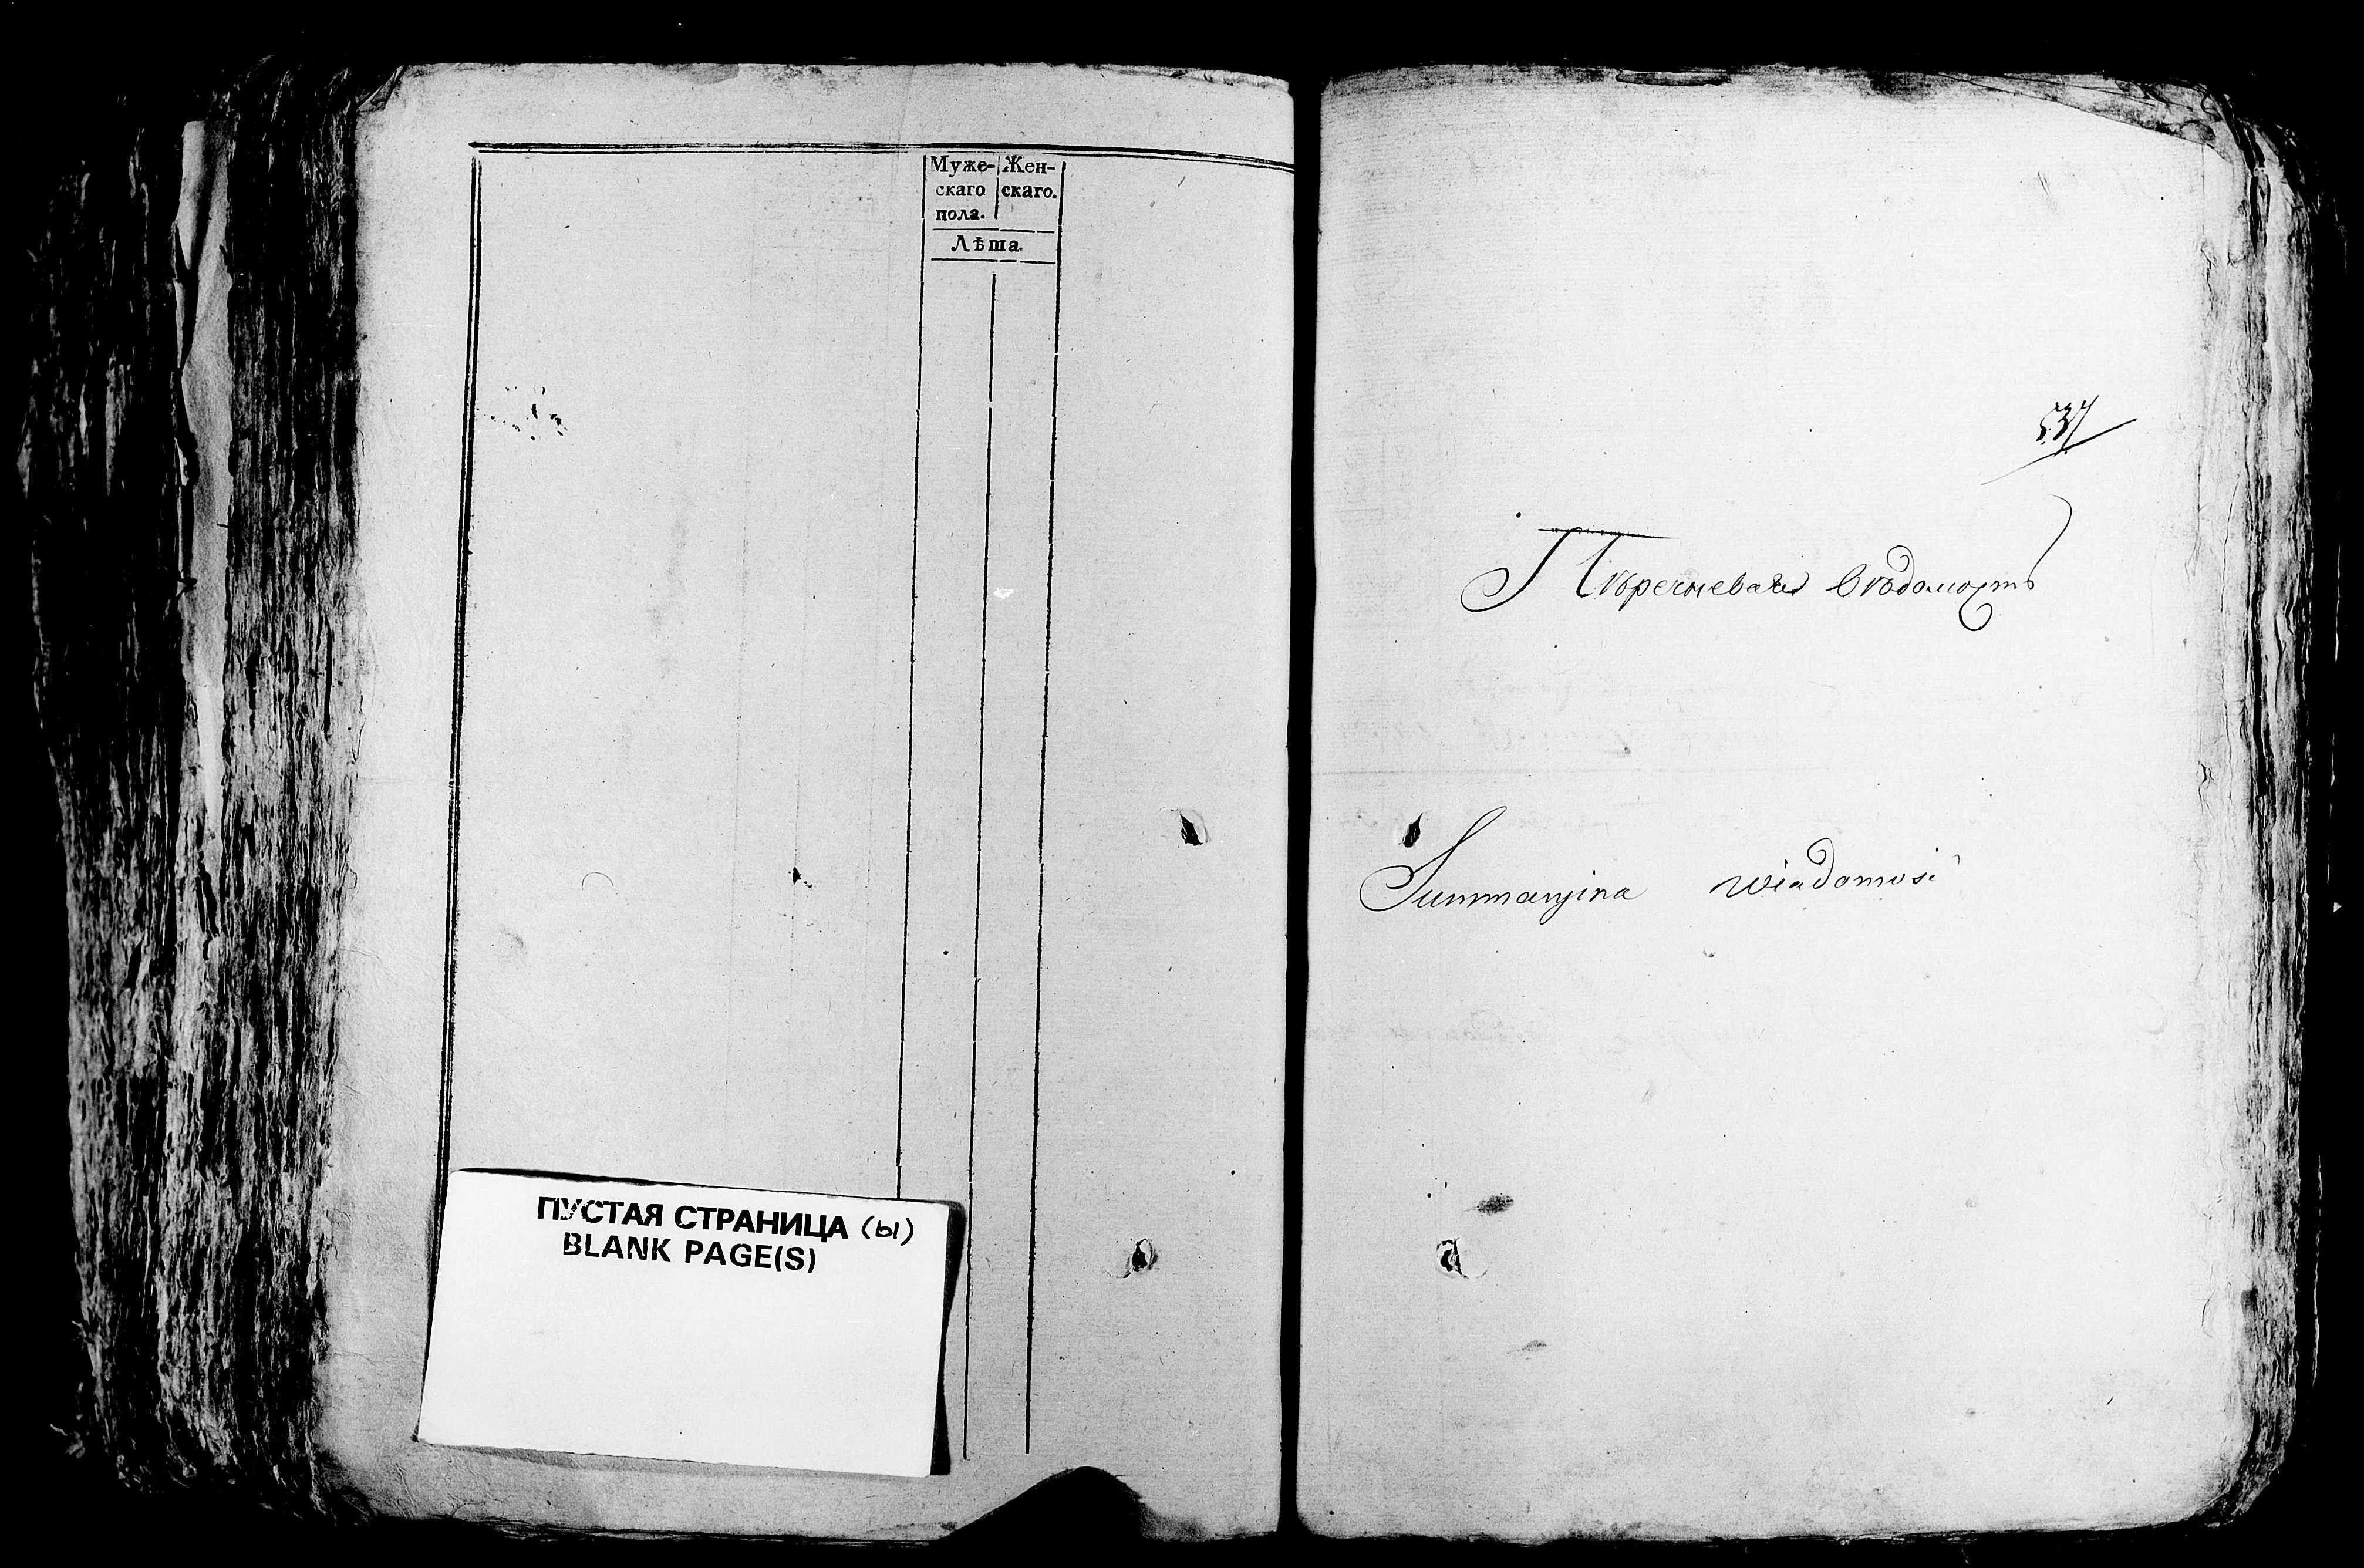 Муже- Жен-
скаго скаго.
пола.
Лѣта.
ПУСТАЯ СТРАНИЦА (ы)
BLANK PAGE(S)
537
Пѣречневая вѣдомость
Summaryina wiadomość